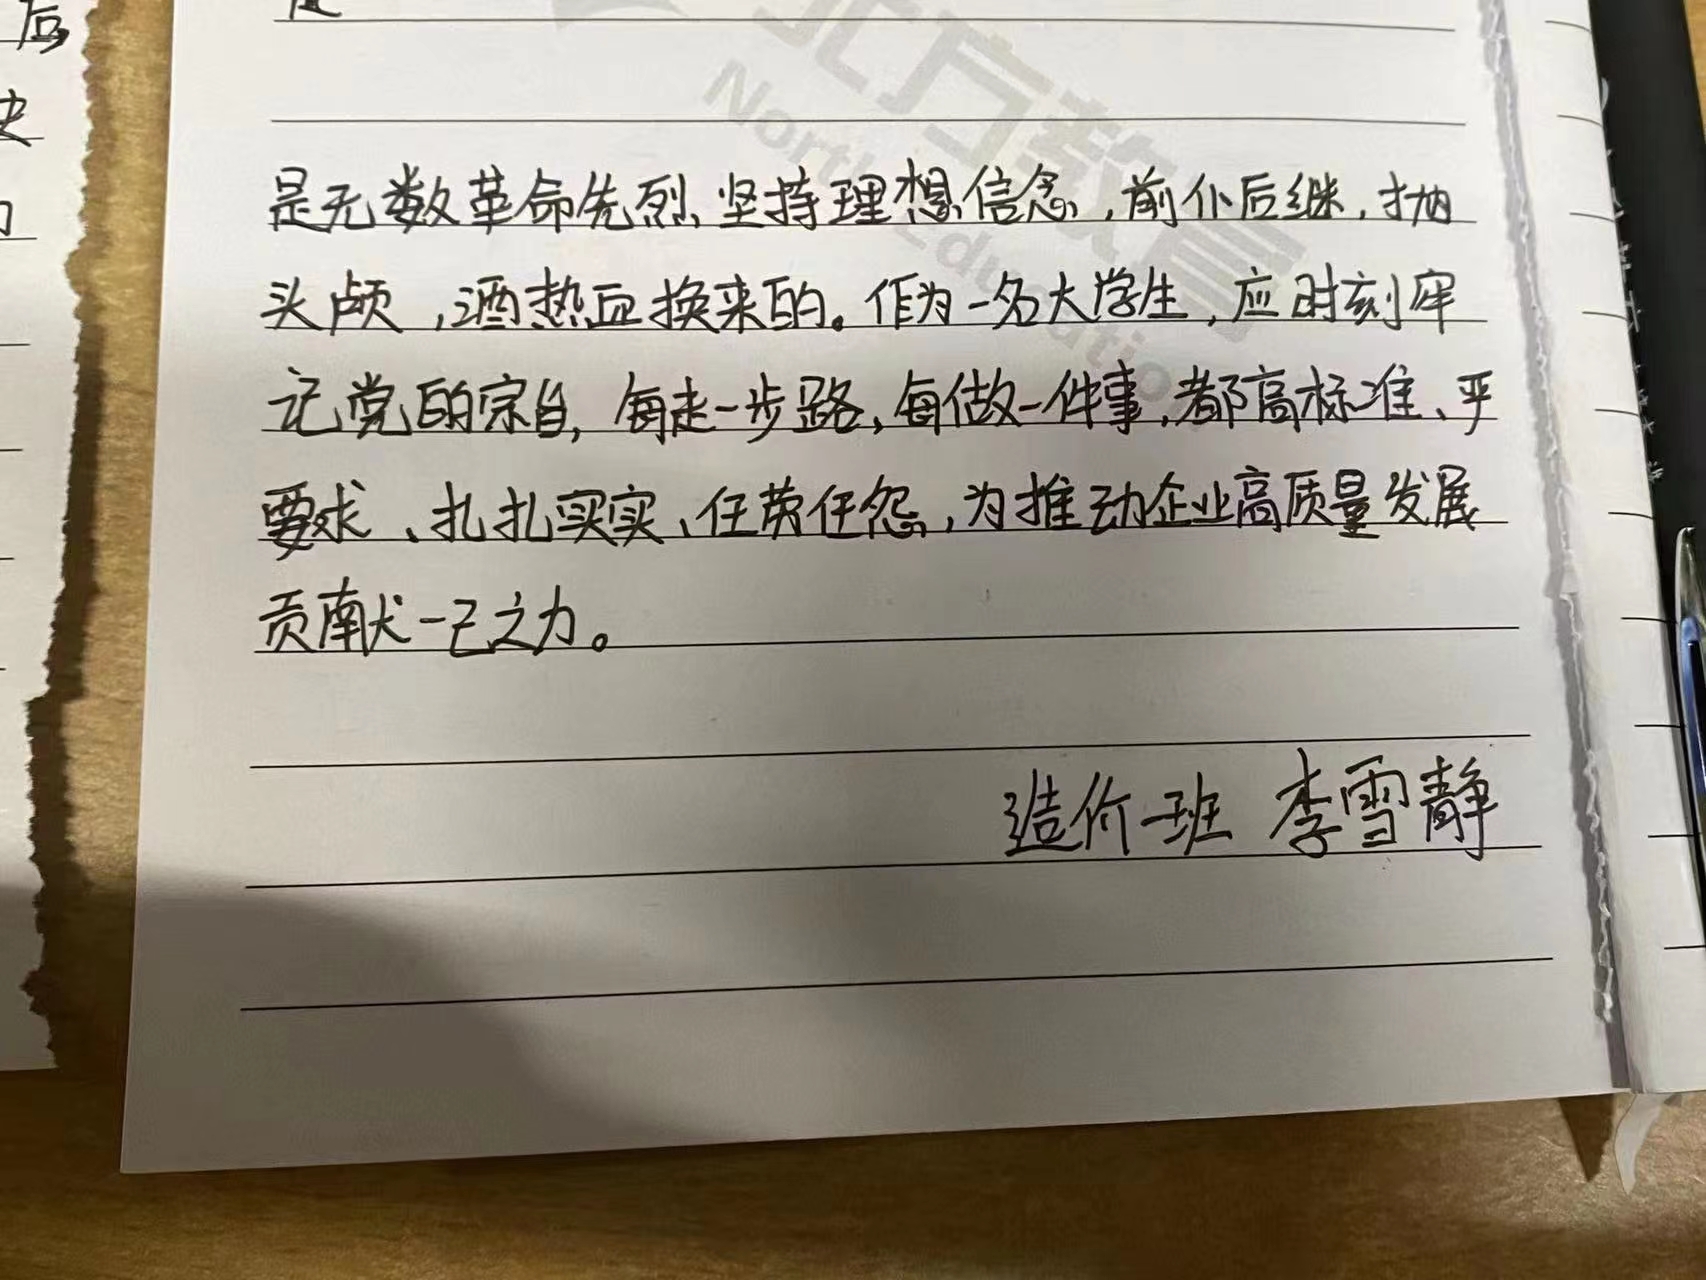 后
是无数革命先烈坚持理想信念，前仆后继，抛
头颅，洒热血换来的。作为一名大学生，应时刻牢
记党的宗旨，每走一步路，每做一件事，都高标准、严
要求、扎扎实实、任劳任怨，为推动企业高质量发展
贡献一己之力。
造价一班 李雪静
北方教育
North Education